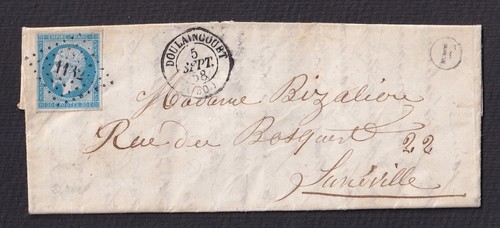 EMPIRE FRANC
DOULAINCOURT
5
SEPT.
58
Madame Bizalion
Rue du Bosquet 22
Lunéville